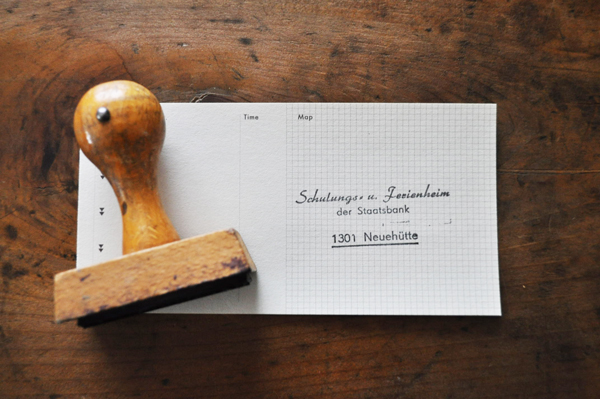 Time Map
Schulungs- u. Ferienheim
der Staatsbank
1301 Neuehütte